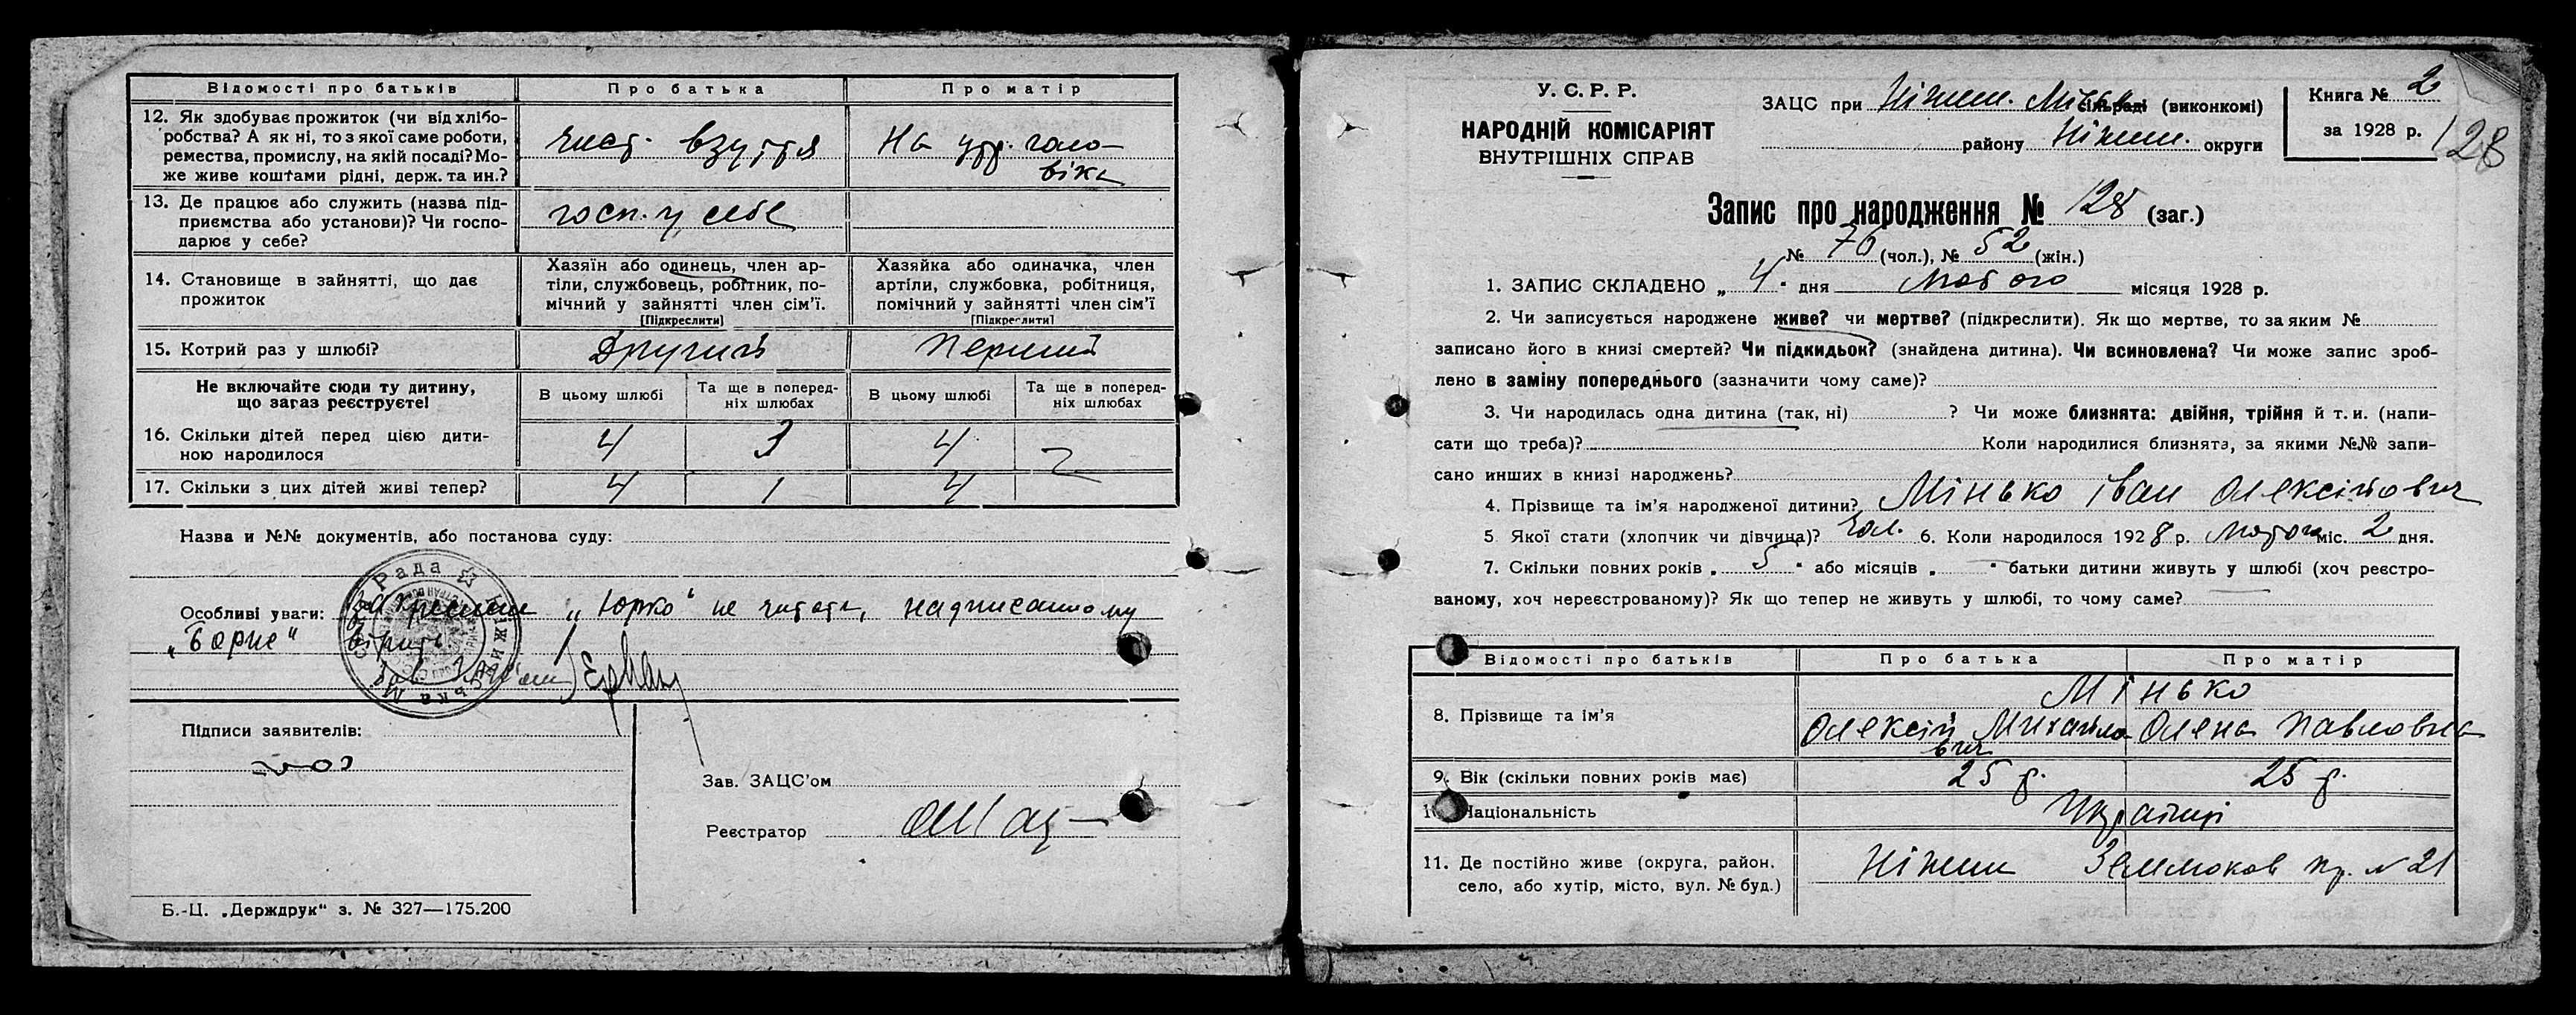 Відомості про батьків
Про батька
Про матір
12. Як здобуває прожиток (чи від хлібо-
робства? А як ні, то з якої саме роботи,
ремества, промислу, на якій посаді? Мо-
же живе коштами рідні, держ. та ин.?
чист. взуття
На утр. чоло-
віка
13. Де працює або служить (назва під-
приємства або установи)? Чи госпо-
дарює у себе?
госп. у себе
14. Становище в зайнятті, що дає
прожиток
Хазяїн або одинець, член ар-
тіли, службовець, робітник, по-
мічний у зайнятті член сім'ї.
[Підкреслити]
Хазяйка або одиначка, член
артіли, службовка, робітниця,
помічний у зайнятті член сім'ї
[Підкреслити]
15. Котрий раз у шлюбі?
Другий
Перший
Не включайте сюди ту дитину,
що зараз реєструєте!
В цьому шлюбі
Та ще в поперед-
ніх шлюбах
В цьому шлюбі
Та ще в поперед-
ніх шлюбах
16. Скільки дітей перед цією дити-
ною народилося
4
3
4
17. Скільки з цих дітей живі тепер?
4
1
4
Назва и №№ документів, або постанова суду:
Особливі уваги: "Юрко" не читати, надписаному
"Борис" вірить
Рада
Підписи заявителів:
Зав. ЗАЦС'ом
Реєстратор
Б.-Ц. „Держдрук" з. № 327—175.200
У. С. Р. Р.
НАРОДНІЙ КОМІСАРІЯТ
ВНУТРІШНІХ СПРАВ
ЗАЦС при Ніжин. Міськ сільраді (виконкомі)
району Ніжин. округи
Книга № 2
за 1928 р.
128
Запис про народження № 128 (заг.)
№ 76 (чол.), № 52 (жін.)
1. ЗАПИС СКЛАДЕНО „4" дня Лютого місяця 1928 р.
2. Чи записується народжене живе? чи мертве? (підкреслити). Як що мертве, то за яким №
записано його в книзі смертей? Чи підкидьок? (знайдена дитина). Чи всиновлена? Чи може запис зроб-
лено в заміну попереднього (зазначити чому саме)?
3. Чи народилась одна дитина (так, ні) ? Чи може близнята: двійня, трійня й т. и. (напи-
сати що треба)? Коли народилися близнята, за якими №№ запи-
сано инших в книзі народжень?
4. Прізвище та ім'я народженої дитини? Мінько Іван Олексійович
5 Якої стати (хлопчик чи дівчина)? чол. 6. Коли народилося 1928 р. Лютого міс. 2 дня.
7. Скільки повних років „5" або місяців „—" батьки дитини живуть у шлюбі (хоч реєстро-
ваному, хоч нереєстрованому)? Як що тепер не живуть у шлюбі, то чому саме?
Відомості про батьків
Про батька
Про матір
8. Прізвище та ім'я
Мінько
Олексій Михайло-
вич
Олена Павловна
9. Вік (скільки повних років має)
25 р.
25 р.
Національність
Українці
11. Де постійно живе (округа, район.
село, або хутір, місто, вул. № буд.)
Ніжин
пр. № 21